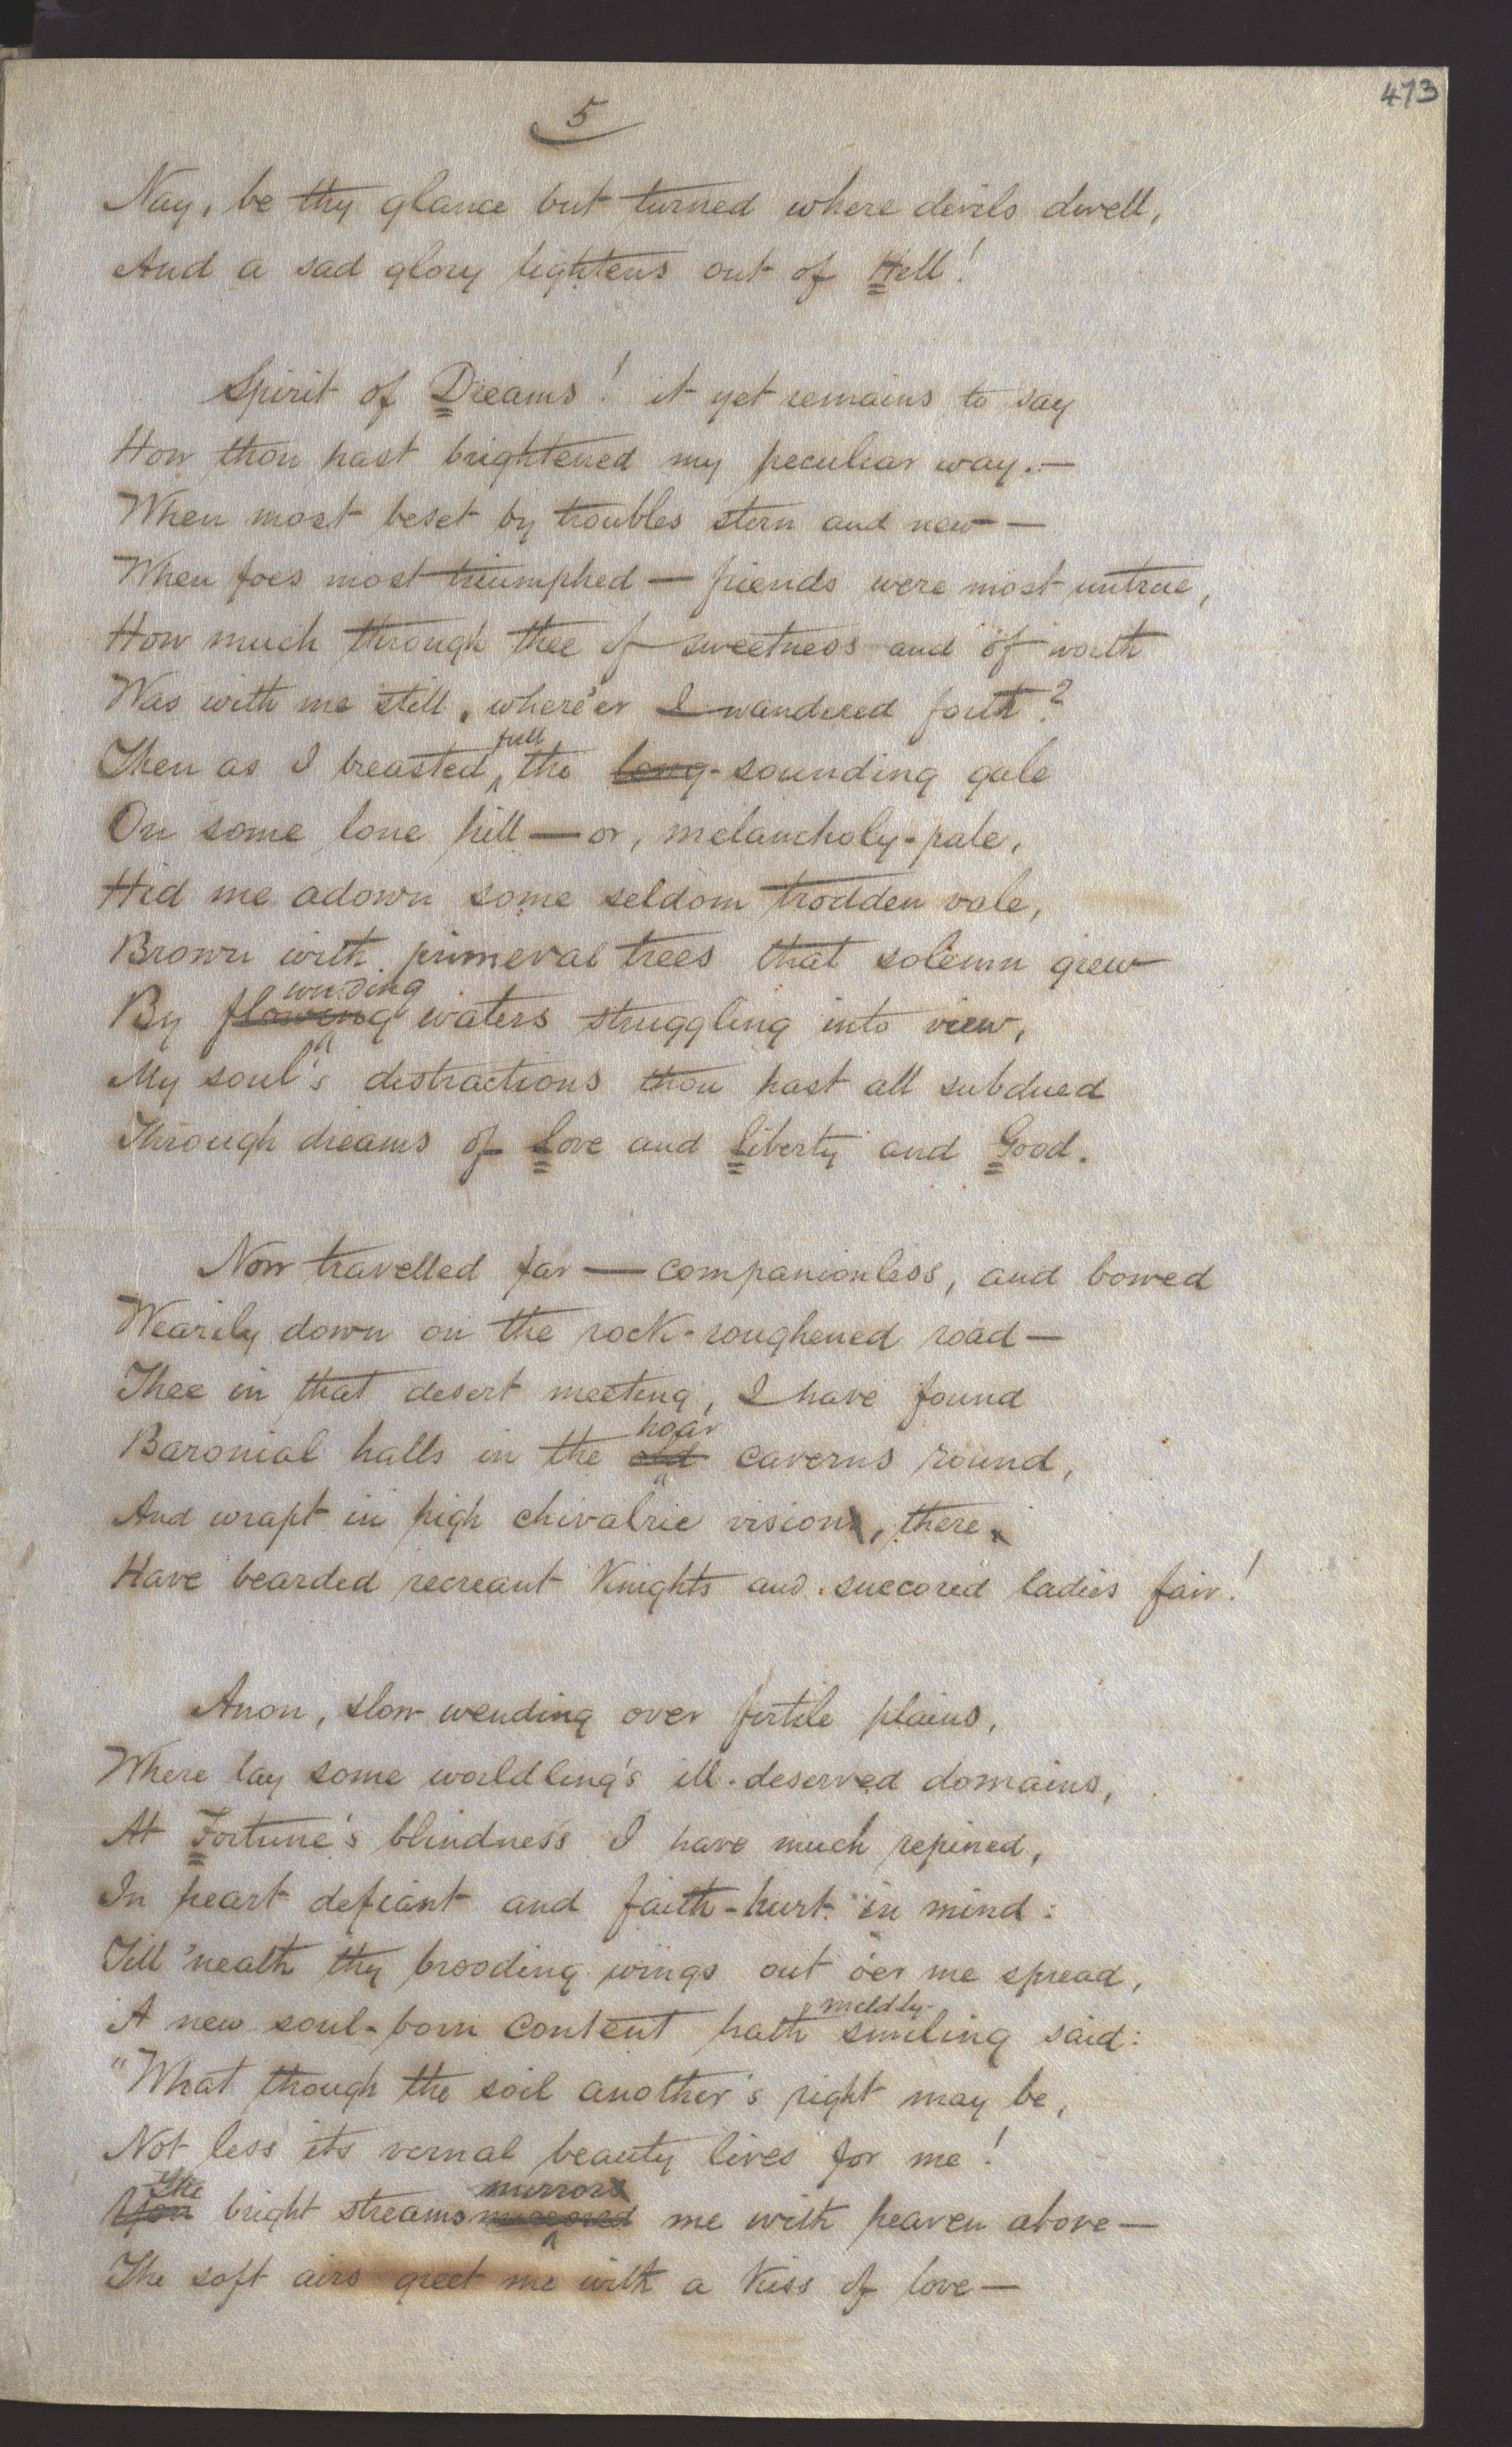 473
5
Nay, be thy glance but turned where devils dwell,
And a sad glory lightens out of Hell!
Spirit of Dreams! it yet remains to say
How thou hast brightened my peculiar way.—
When most beset by troubles stern and new—
When foes most triumphed — friends were most untrue,
How much through thee of sweetness and of worth
Was with me still, where'er I wandered forth?
full
Then as I breasted, the long-sounding gale
On some lone hill — or, melancholy-pale,
Hid me adown some seldom trodden vale,
Brown with primeval trees that solemn grew
winding
By flowing waters struggling into view,
My soul's distractions thou hast all subdued
Through dreams of Love and Liberty and Good.
Now travelled far — companionless, and bowed
Wearily down on the rock-roughened road—
Thee in that desert meeting, I have found
hoar
Baronial halls in the old caverns round,
And wrapt in high chivalric visions, there
Have bearded recreant Knights and succored ladies fair!
Anon, slow wending over fertile plains,
Where lay some worldling's ill-deserved domains,
At Fortune's blindness I have much repined,
In heart defiant and faith-hurt in mind:
Till 'neath thy brooding wings out o'er me spread,
mildly
A new soul-born content hath smiling said:
"What though the soil another's right may be,
Not less its vernal beauty lives for me!
The mirrors
Yon bright streams me with heaven above—
The soft airs greet me with a kiss of love—